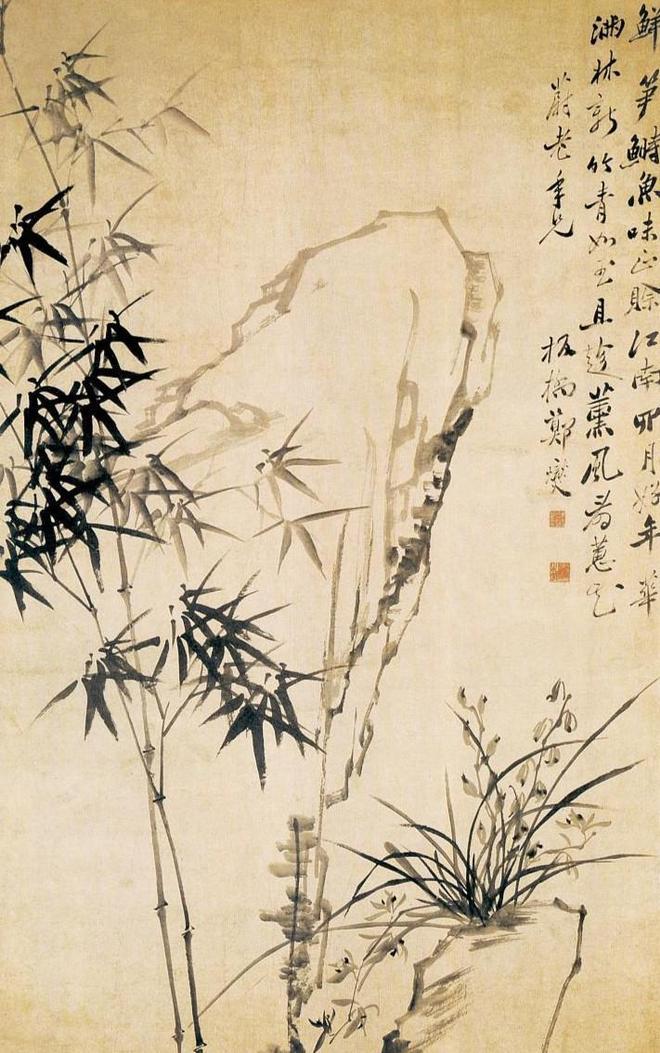 鮮笋鰣魚味正賒江南四月好年華
滿林新竹青如玉且趂薰風看蕙花
蔚老年兄 板橋鄭燮